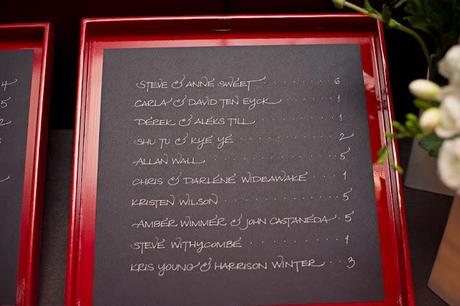 4
5
STEVE & ANNE SWEET ........ 6
CARLA & DAVID TEN EYCK ...... 1
DEREK & ALEKS TILL ........ 1
SHU TU & KYE YE .......... 2
ALLAN WALL ............ 5
CHRIS & DARLENE WIDEAWAKE .... 1
KRISTEN WILSON .......... 5
AMBER WIMMER & JOHN CASTANEDA .. 5
STEVE WITHYCOMBE ......... 1
KRIS YOUNG & HARRISON WINTER ... 3